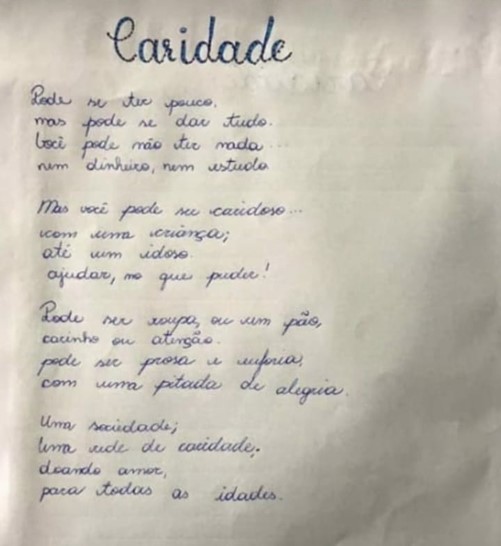 Caridade
Pode se ter pouco,
mas pode se dar tudo.
Você pode não ter nada...
nem dinheiro, nem estudo
Mas você pode ser caridoso...
com uma criança;
até um idoso.
ajudar, no que puder!
Pode ser roupa, ou um pão,
carinho ou atenção.
pode ser prosa e euforia,
com uma pitada de alegria.
Uma sociedade;
Uma rede de caridade.
doando amor,
para todas as idades.